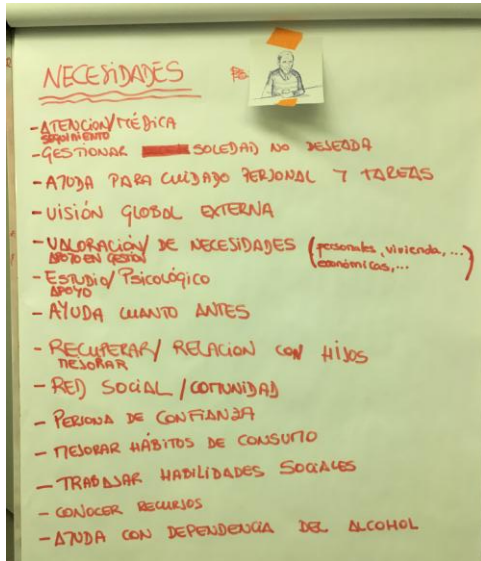 NECESIDADES
- ATENCION/MÉDICA
SEGUIMIENTO
- GESTIONAR SOLEDAD NO DESEADA
- AYUDA PARA CUIDADO PERSONAL Y TAREAS
- VISIÓN GLOBAL EXTERNA
- VALORACIÓN/ DE NECESIDADES (personales, vivienda, ...
APOYO EN GESTIÓN económicas, ...)
- ESTUDIO/ Psicológico
APOYO
- AYUDA CUANTO ANTES
- RECUPERAR/ RELACION CON HIJOS
MEJORAR
- RED SOCIAL / COMUNIDAD
- PERSONA DE CONFIANZA
- MEJORAR HÁBITOS DE CONSUMO
- TRABAJAR HABILIDADES SOCIALES
- CONOCER RECURSOS
- AYUDA CON DEPENDENCIA DEL ALCOHOL